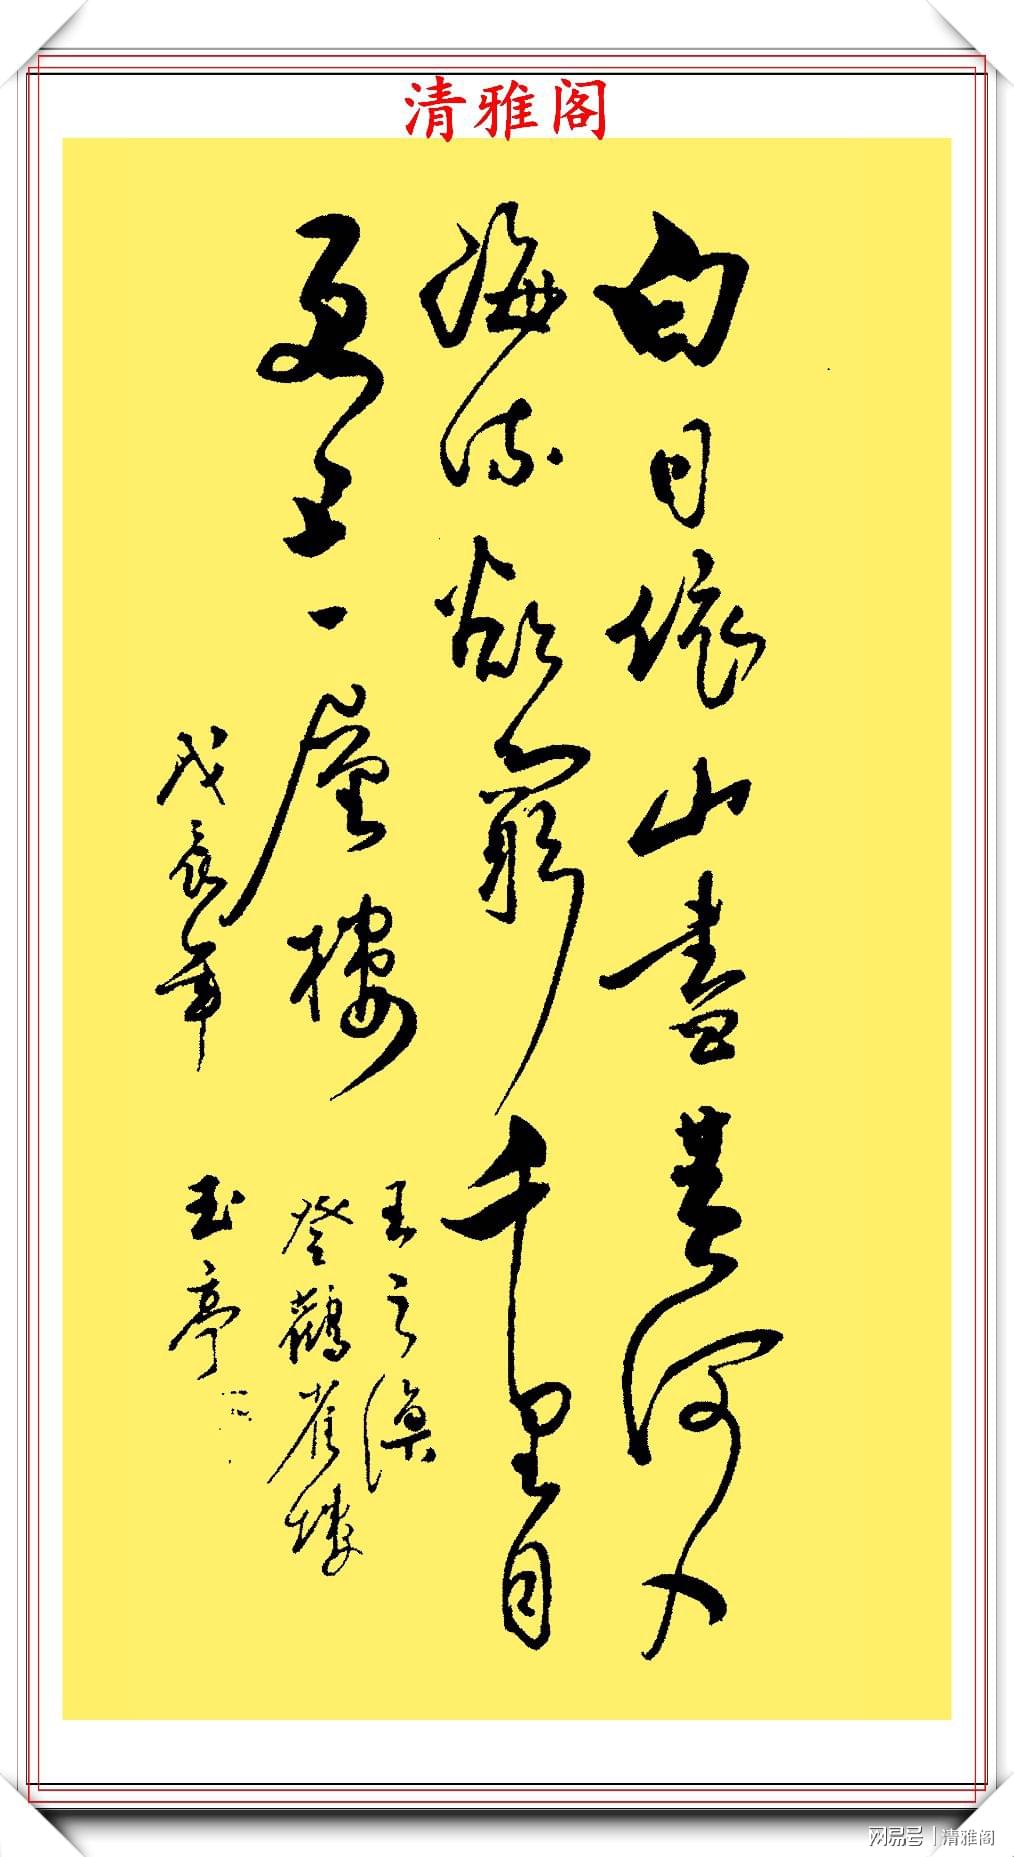 清雅阁
白日依山盡黃河入
海流欲窮千里目
更上一層樓
王之渙
登鸛雀樓
戊辰年 玉亭
网易号 | 清雅阁